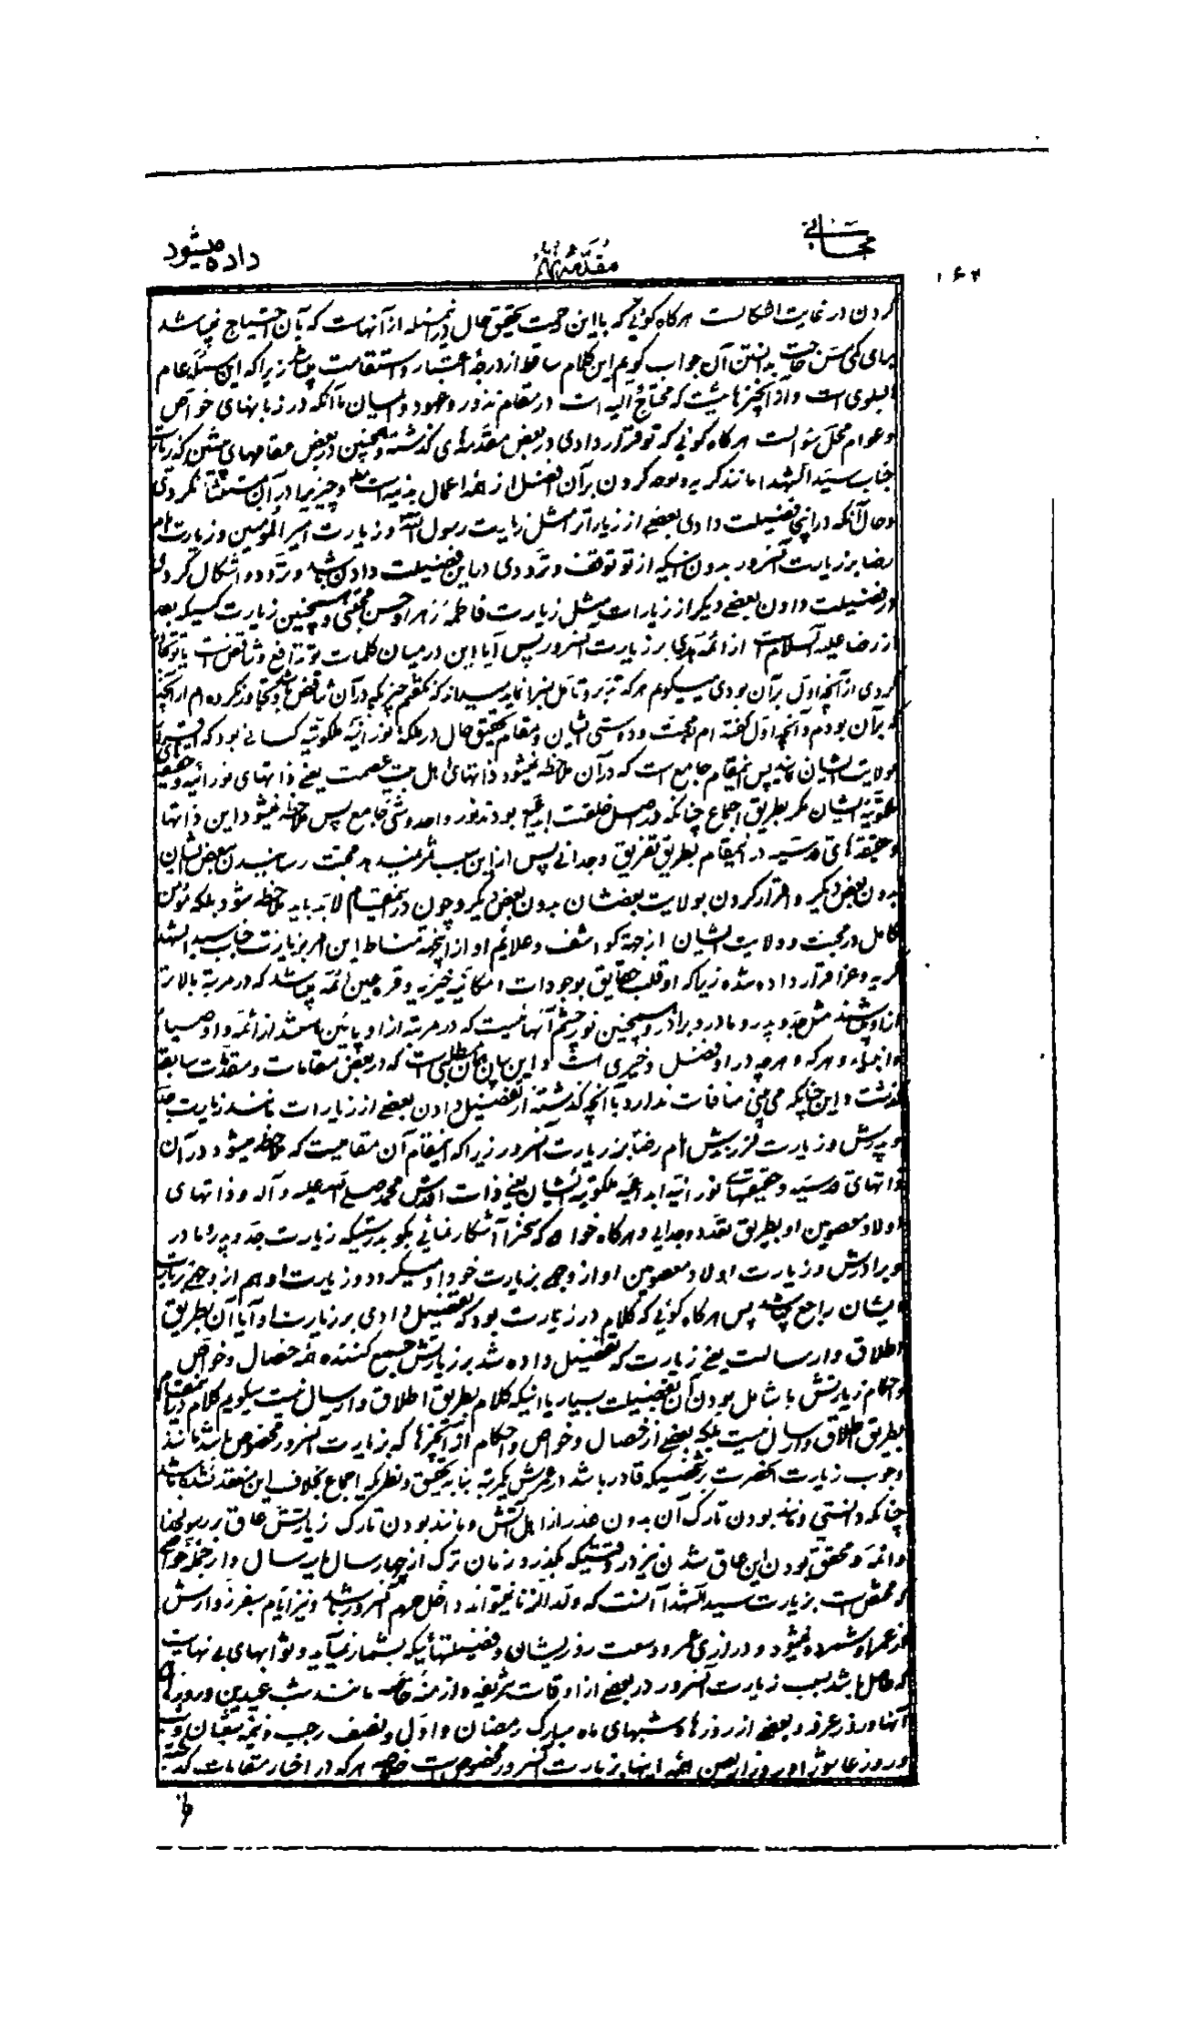 داده میشود
مقدمه نهم
۱۶۲
کردن در غایت اشکالست هرگاه گوئی که با این حرمت تحقیق حال در مسئله از آنهاست که بآن احتیاج نمیباشد
برای کسی حاجت بدانستن آن جواب گویم این کلام ساقط از درجهٔ اعتبار و استقامت زیرا که این مسئله عام
البلوی است و از آنچیزهائیست که محتاج الیه است در مقام نذور و عهود و ایمان با آنکه در زبانهای خواص
و عوام محل سؤالست هرگاه گوئی که تو قرار دادی در بعض مقدمهای گذشته و همچنین در بعض مقامهای پیشین که زیارت
جناب سید الشهدا مانند گریه و نوحه کردن بر آن افضل از همهٔ اعمال بدنیه است و چیزیرا در آن مستثنا نکردی
و حال آنکه در اینجا فضیلت دادی بعضی از زیارات را مثل زیارت رسول الله و زیارت امیر المؤمنین و زیارت امام
رضا بر زیارت آنسرور بدون اینکه از تو توقف و ترددی در این فضیلت دادن باشد و تردد و اشکال کردی
در فضیلت دادن بعضی دیگر از زیارات مثل زیارت فاطمهٔ زهرا و حسن مجتبی و همچنین زیارت کسیکه بعد
از رضا علیه السلام است از ائمه هدی بر زیارت آنسرور پس آیا این در میان کلمات تو تدافع و تناقض است یا تو تجاوز
کردی از آنچه اول بر آن بودی میگویم هرکه تدبر و تأمل بسزا نماید میداند که نگفتم چیزیکه در آن تناقض باشد و تجاوز نکرده ام از آنچه
که بر آن بودم و آنچه اول گفته ام محبت و دوستی ایشان و مقام تحقیق حال در ملکهٔ نورانیه ملکوتیه کسانی بود که اقرار
بولایت ایشان نمایند پس اینمقام جامع است که در آن ملاحظه نمیشود ذاتهای اهل بیت عصمت یعنی ذاتهای نورانیه و حقیقتهای
ملکوتیهٔ ایشان مگر بطریق اجماع چنانکه در اصل خلقت ابداعیه بودند نور واحد و شیئ جامع پس ملاحظه نمیشود این ذاتها
و حقیقتهای قدسیه در اینمقام بطریق تفریق و جدائی پس از این سبب ثمر نمیدهد محبت رسانیدن بعض ایشان
بدون بعض دیگر و اقرار کردن بولایت بعضشان بدون بعض دیگر و چون در اینمقام لابد باید ملاحظه شود بلکه مؤمن
کامل در محبت و ولایت ایشان از جهة کواشف و علائم او از اینجهة مناط این امر بزیارت جناب سید الشهدا
گریه و عزا قرار داده شده زیرا که او قلب حقایق موجودات امکانیه خیریه و قره عین ائمه میباشد که در مرتبهٔ بالاتر
از او میباشند مثل جد و پدر و مادر و برادر و همچنین نور چشم آنهائیست که در مرتبه از او پائین باشند از ائمه و اوصیا
و انبیاء و هرکه و هرچه در او فضل و خیری است و این بیان همان مطلبی است که در بعض مقامات و مقدمات سابقه
گذشت و این چنانکه می بینی منافات ندارد با آنچه گذشته از تفضیل دادن بعضی از زیارات مانند زیارت جد
و پدرش و زیارت فرزندش امام رضا بر زیارت آنسرور زیرا که اینمقام آن مقامیست که ملاحظه میشود در آن
ذاتهای قدسیه و حقیقتهای نورانیه ابداعیه ملکوتیه ایشان یعنی ذات اقدس محمد صلی الله علیه و آله و ذاتهای
اولاد معصومین او بطریق تعدد و جدایی و هرگاه خواهی که سخنرا آشکار نمائی بگو بدرستیکه زیارت جد و پدر و مادر
و برادرش و زیارت اولاد معصومین او از وجهی بزیارت خود او میگردد و زیارت او هم از وجهی بزیارت
ایشان راجع میباشد پس هرگاه گوئی که کلام در زیارت بود که تفضیل دادی بر زیارت او آیا آن بطریق
اطلاق و ارسالست یعنی زیارت که تفضیل داده شد بر زیارتش جمع کننده همهٔ خصال و خواص
و احکام زیارتش با شامل بودن آن تفضیلت بسیار یا اینکه کلام بطریق اطلاق و ارسال نیست میگویم کلام در اینمقام
بطریق اطلاق و ارسال نیست بلکه بعضی از خصال و خواص و احکام از آنچیزها که بزیارت آنسرور مخصوص باشد مانند
وجوب زیارت آنحضرت بر شخصیکه قادر باشد در عمرش یکمرتبه بنا بر تحقیق و نظر که اجماع بخلاف این منعقد نشده باشد
چنانکه دانستی و مانند بودن تارک آن بدون عذر از اهل آتش و مانند بودن تارک زیارتش عاق بر رسولخدا
و ائمه و محقق بودن این عاق شدن نیز در وقتیکه بگذرد زمان ترک از چهار سال یا سه سال و از جمله خواص
که مختص است بزیارت سید الشهدا آنست که ولد الزنا نمیتواند داخل حرم آنسرور باشد و نیز ایام سفر زوارش
از عمر او شمرده نمیشود و درازی عمر و وسعت روزیشان و فضیلتهائیکه بشمار نمیآید و ثوابهای بی نهایت
که حاصل باشد بسبب زیارت آنسرور در بعضی از اوقات شریفه و ازمنهٔ خاصه مانند شب عیدین و روزهای
آنها و روز عرفه و بعضی از روزها و شبهای ماه مبارک رمضان و اول و نصف رجب و نیمهٔ شعبان و شب
و روز عاشورا و روز اربعین همهٔ اینها بزیارت آنسرور مخصوص است خلاصه هرکه در اخبار مقامات گذشته